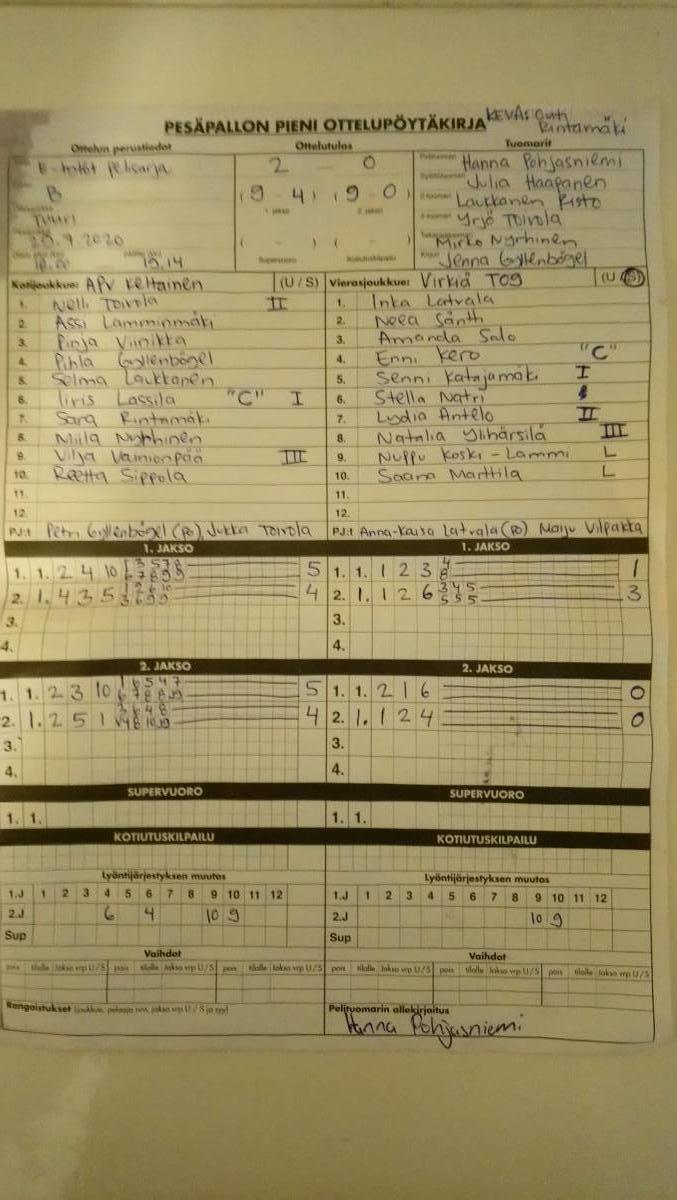 KEVÄS Outi
Rintamäki
PESÄPALLON PIENI OTTELUPÖYTÄKIRJA
Ottelun perustiedot Ottelutulos Tuomarit
E-tytöt pelisarja 2 - 0 Hanna Pohjasniemi
Julia Haapanen
B (9 - 4) (9 - 0) Laukkanen Risto
1. jakso 2. jakso
Yrjö Toivola
.9.2020 ( - ) ( - ) Mirko Nyrhinen
19.14 Supervuoro Kotiutuskilpailu Jenna Gyllenbögel
Kotijoukkue: APV Keltainen (U / S) Vierasjoukkue: Virkiä T09 (U / S)
1. Nelli Toivola II 1. Inka Latvala
2. Assi Lamminmäki 2. Neea Sänth
3. Pinja Viinikka 3. Amanda Salo
4. Pihla Gyllenbögel 4. Enni Kero "C"
5. Selma Laukkanen 5. Senni Katajamäki I
6. Iiris Lassila "C" I 6. Stella Natri
7. Sara Rintamäki 7. Lydia Antelo II
8. Miila Nyrhinen 8. Natalia Ylihärsilä III
9. Vilja Vainionpää III 9. Nuppu Koski-Lammi L
10. Reetta Sippola 10. Saana Marttila L
11. 11.
12. 12.
PJ:t Petri Gyllenbögel (PJ), Jukka Toivola PJ:t Anna-Kaisa Latvala (PJ) Maiju Vilpakka
1. JAKSO 1. JAKSO
1. 1. 2 4 10 5 1. 1. 1 2 3 4 8 1
2. 1. 4 3 5 4 2. 1. 1 2 6 3 4 5 5 5 5 3
3. 3.
4. 4.
2. JAKSO 2. JAKSO
1. 1. 2 3 10 5 1. 1. 2 1 6 0
2. 1. 2 5 1 4 2. 1. 1 2 4 0
3. 3.
4. 4.
SUPERVUORO SUPERVUORO
1. 1. 1. 1.
KOTIUTUSKILPAILU KOTIUTUSKILPAILU
Lyöntijärjestyksen muutos Lyöntijärjestyksen muutos
1.J 1 2 3 4 5 6 7 8 9 10 11 12 1.J 1 2 3 4 5 6 7 8 9 10 11 12
2.J 6 4 10 9 2.J 10 9
Sup Sup
Vaihdot Vaihdot
pois tilalle Jakso vrp U / S pois tilalle Jakso vrp U / S pois tilalle Jakso vrp U / S pois tilalle Jakso vrp U / S pois tilalle Jakso vrp U / S pois tilalle Jakso vrp U / S
Rangaistukset (joukkue, pelaaja nro, jakso vrp U / S ja syy) Pelituomarin allekirjoitus
Hanna Pohjasniemi